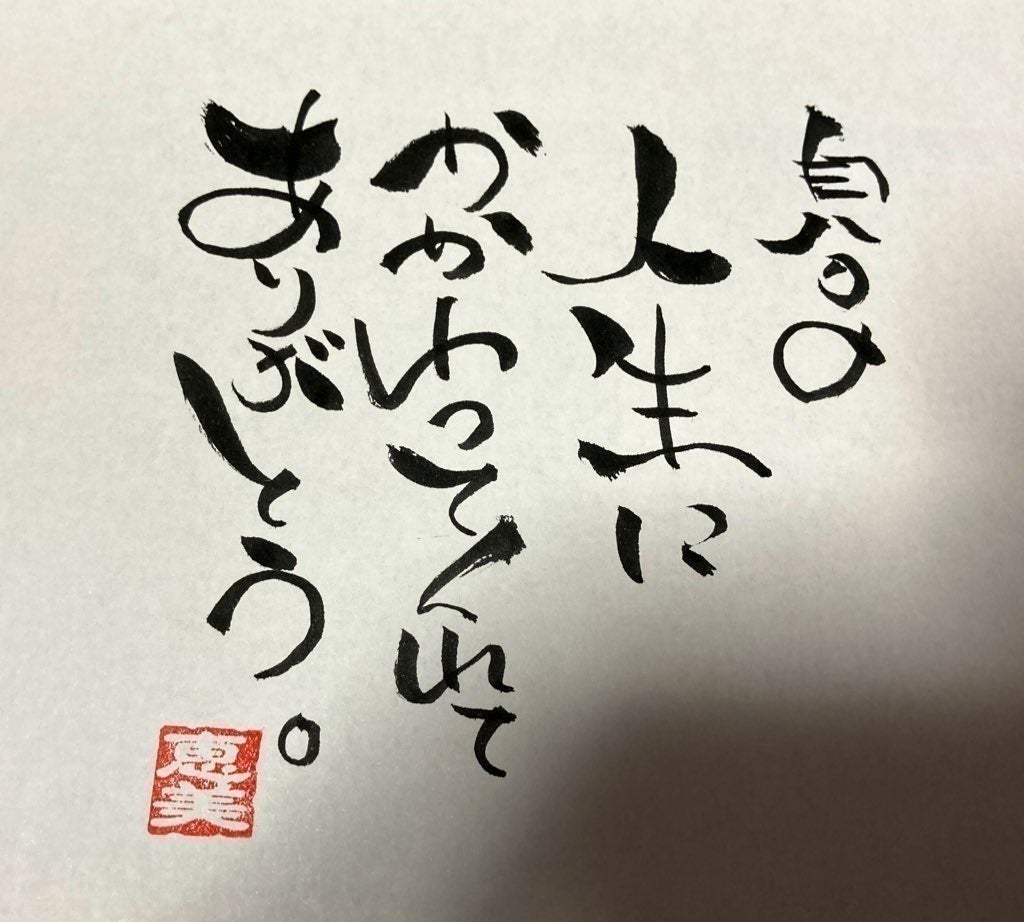 自分の
人生に
かかわってくれて
ありがとう。
恵美